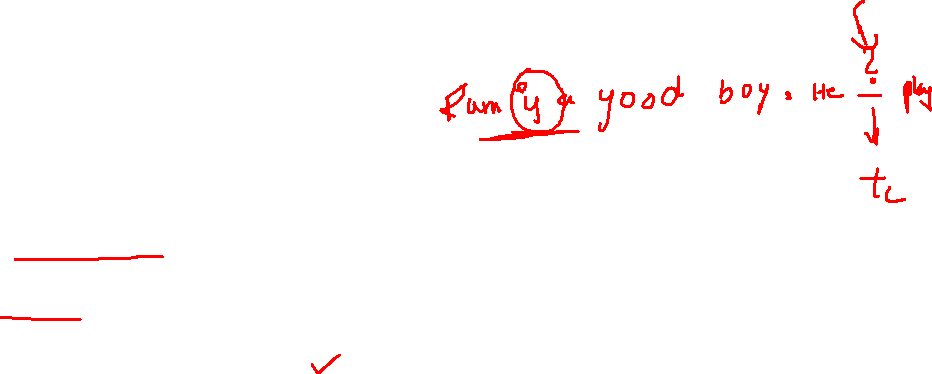 Ram is a good boy. He ? play
tc